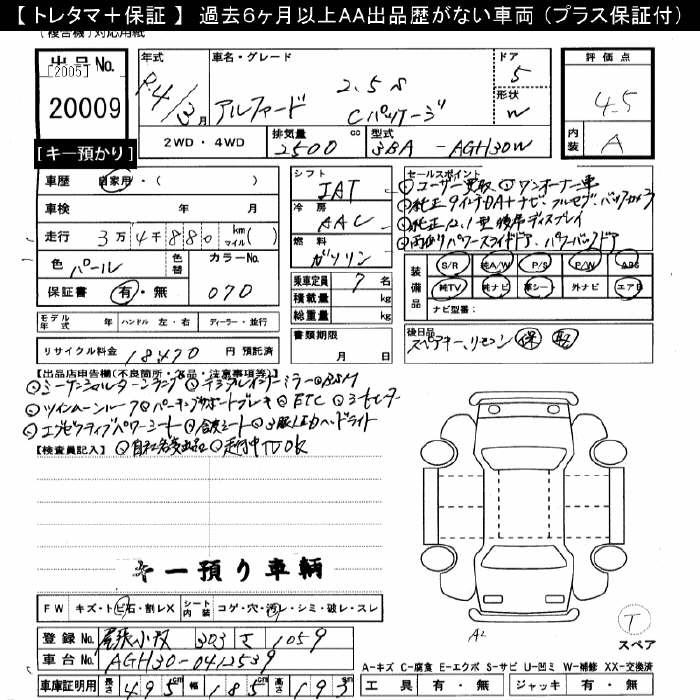 【 トレタマ＋保証 】 過去6ヶ月以上AA出品歴がない車両（プラス保証付）
(複合機)対応用紙
出品No. [2005] 20009
[キー預かり]
年式 R4/3月
車名・グレード アルファード 2.5S Cパッケージ
ドア 5
形状 W
評価点 4.5
内装 A
2WD・4WD
排気量 2500 cc
型式 3BA - AGH30W
車歴 自家用・( )
車検 年 月
走行 3万4千880 km マイル( )
色 パール
色替
カラーNo. 070
保証書 有・無
シフト IAT
冷房 AAC
燃料 ガソリン
乗車定員 7名
積載量 kg
総重量 kg
セールスポイント
①ユーザー買取 ②ワンオーナー車
③純正9インチDA+ナビ、フルセグ、バックカメラ
④純正12.1型後席ディスプレイ
⑤両側パワースライドドア、パワーバックドア
装備品 S/R 純A/W P/S P/W ABS
純TV 純ナビ 革シート 外ナビ エアB
ナビ型番:
モデル年式 年 ハンドル 左・右 ディーラー・並行
リサイクル料金 18470 円 預託済
書類期限 月 日
後日品 スペアキー、リモコン 保 取
【出品店申告欄(不良箇所・欠品・注意事項等)】
シーケンシャルターンランプ デジタルインナーミラー BSM
ツインムーンルーフ パーキングサポートブレーキ ETC
エグゼクティブパワーシート 合皮シート 3眼LEDヘッドライト
【検査員記入】 走行中TV OK
キー預り車輌
FW キズ・トビ石・割レX シート内装 コゲ・穴・汚レ・シミ・破レ・スレ
登録No. 尾張小牧 303 さ 1059
車台No. AGH30-0412539
車庫証明用 長さ 495cm 幅 185cm 高さ 193cm
A2
T
スペア
A-キズ C-腐食 E-エクボ S-サビ U-凹ミ W-補修 XX-交換済
工具 有・無 ジャッキ 有・無